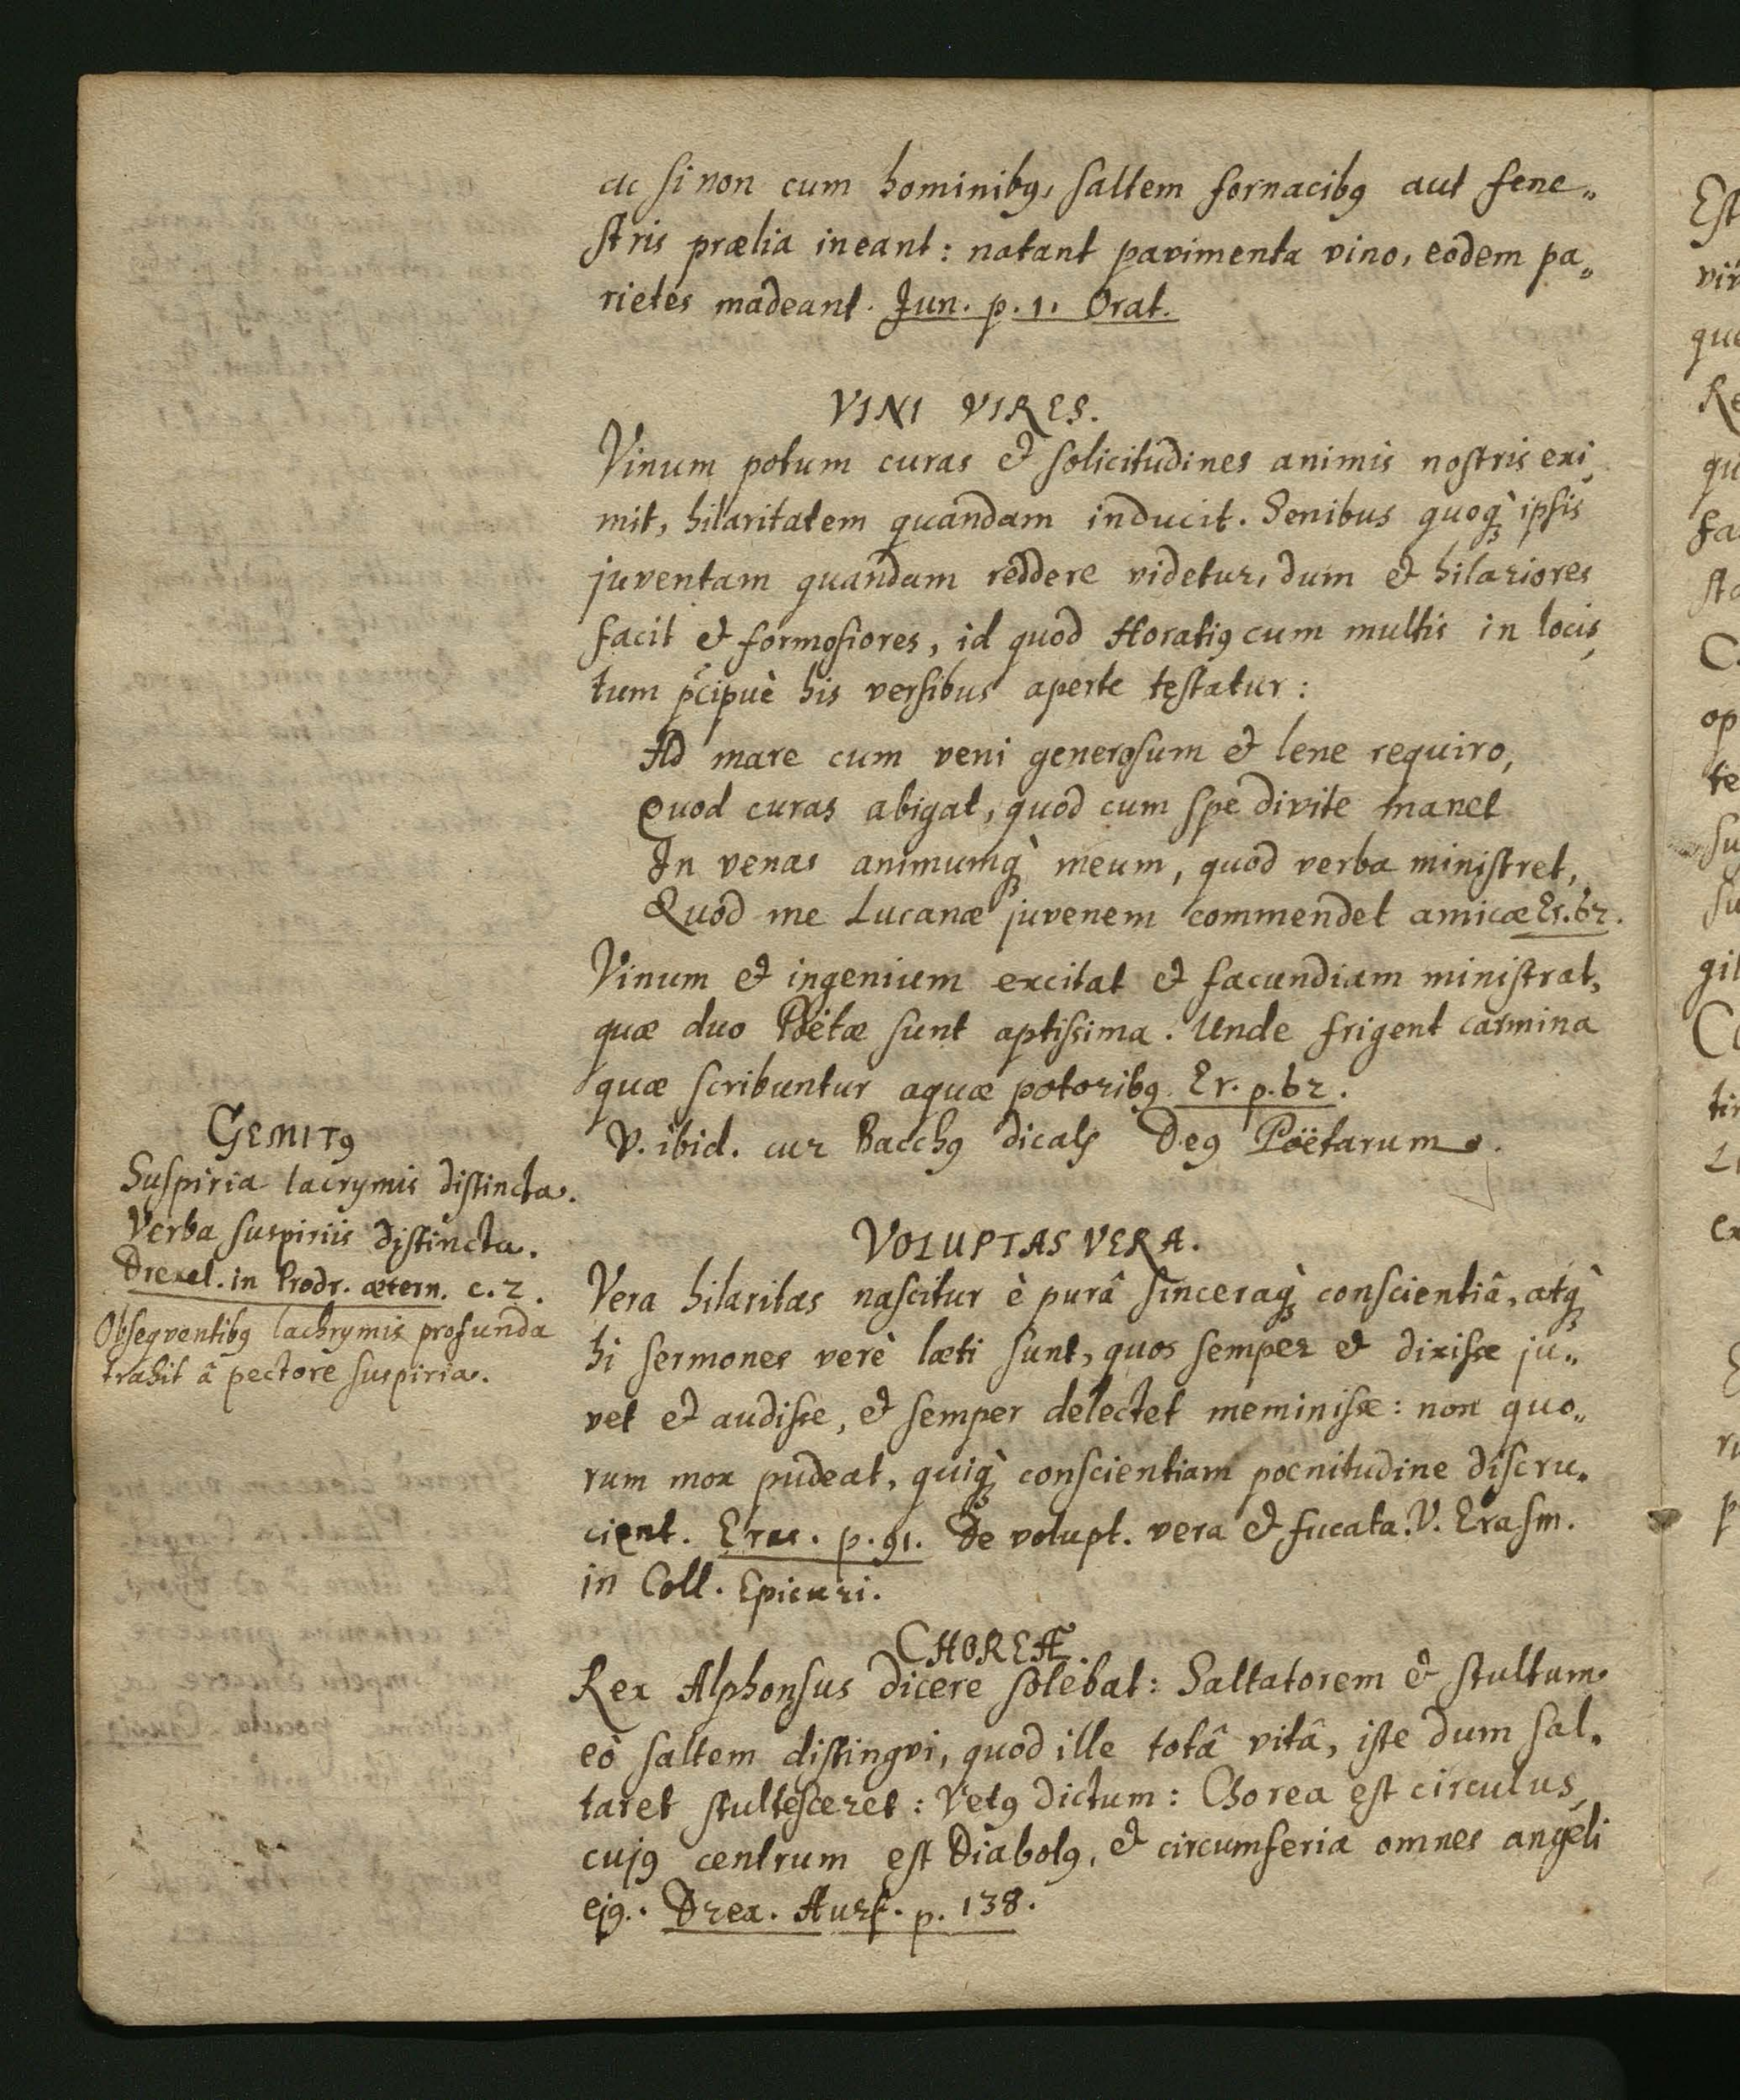 ac si non cum hominibꝰ, saltem fornacibꝰ aut fene„
stris prælia ineant: natant pavimenta vino, eodem pa„
rietes madeant. Jun. p. 1. Orat.
VINI VIRES.
Vinum potum curas & solicitudines animis nostris exi„
mit, hilaritatem quandam inducit. Senibus quoq̀ꝫ ipsis
juventam quandam reddere videtur, dum & hilariores
facit & formosiores, id quod Horatiꝰ cum multis in locis,
tum p̄cipuè his versibus aperte testatur:
Ad mare cum veni generosum & lene requiro,
Quod curas abigat, quod cum spe divite manet
In venas animumq̀ꝫ meum, quod verba ministret,
Quod me Lucanæ juvenem commendet amicæ Er. 62.
Vinum & ingenium excitat & facundiam ministrat,
quæ duo Poëtæ sunt aptissima. Unde frigent carmina
quæ scribuntur aquæ potoribꝰ Er. p. 62.
V. ibid. cur Bacchꝰ dicatʒ Deꝰ Poëtarum.
GEMITꝰ
Suspiria lacrymis distincta.
Verba suspiriis distincta.
Drexel. in Prodr. ætern. c. 2.
Obseqventibꝰ lachrymis profunda
trahit â pectore suspiria.
VOLUPTAS VERA.
Vera hilaritas nascitur è purâ sinceraq̀ꝫ conscientiâ, atq̀ꝫ
hi sermones verè læti sunt, quos semper & dixisse ju„
vet & audisse, & semper delectet meminisse: non quo„
rum mox pudeat, quiq̀ꝫ conscientiam poenitudine discru„
cient. Eras. p. 91. De volupt. vera & fucata. V. Erasm.
in Coll. Epicuri.
CHOREÆ.
Rex Alphonsus dicere solebat: Saltatorem & stultum
eò saltem distingvi, quod ille totâ vitâ, iste dum sal„
taret stultesceret: Vetꝰ dictum: Chorea est circulus,
cujꝰ centrum est Diabolꝰ, & circumferia omnes angeli
ejꝰ. Drex. Aurf. p. 138.